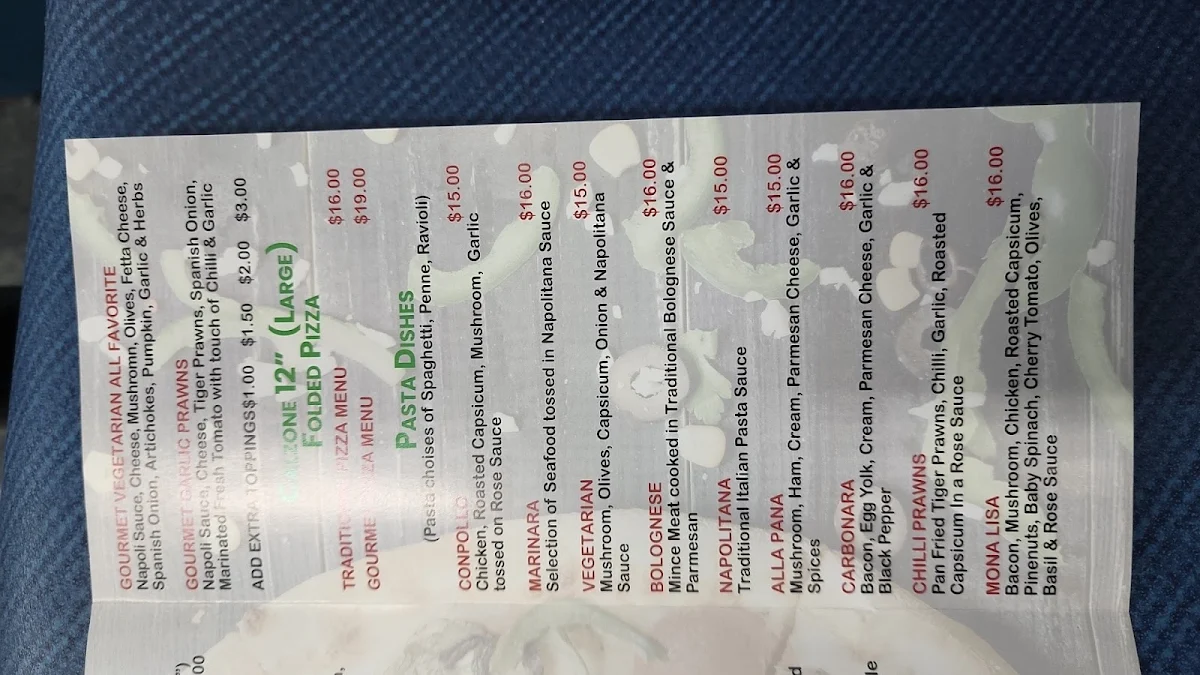 GOURMET VEGETARIAN ALL FAVORITE
Napoli Sauce, Cheese, Mushromn, Olives, Fetta Cheese,
Spanish Onion, Artichokes, Pumpkin, Garlic & Herbs
GOURMET GARLIC PRAWNS
Napoli Sauce, Cheese, Tiger Prawns, Spanish Onion,
Marinated Fresh Tomato with touch of Chilli & Garlic
ADD EXTRA TOPPINGS $1.00 $1.50 $2.00 $3.00
CALZONE 12" (LARGE)
FOLDED PIZZA
TRADITIONAL PIZZA MENU $16.00
GOURMET PIZZA MENU $19.00
PASTA DISHES
(Pasta choises of Spaghetti, Penne, Ravioli)
CONPOLLO $15.00
Chicken, Roasted Capsicum, Mushroom, Garlic
tossed on Rose Sauce
MARINARA $16.00
Selection of Seafood tossed in Napolitana Sauce
VEGETARIAN $15.00
Mushroom, Olives, Capsicum, Onion & Napolitana
Sauce
BOLOGNESE $16.00
Mince Meat cooked in Traditional Bolognese Sauce &
Parmesan
NAPOLITANA $15.00
Traditional Italian Pasta Sauce
ALLA PANA $15.00
Mushroom, Ham, Cream, Parmesan Cheese, Garlic &
Spices
CARBONARA $16.00
Bacon, Egg Yolk, Cream, Parmesan Cheese, Garlic &
Black Pepper
CHILLI PRAWNS $16.00
Pan Fried Tiger Prawns, Chilli, Garlic, Roasted
Capsicum In a Rose Sauce
MONA LISA $16.00
Bacon, Mushroom, Chicken, Roasted Capsicum,
Pinenuts, Baby Spinach, Cherry Tomato, Olives,
Basil & Rose Sauce